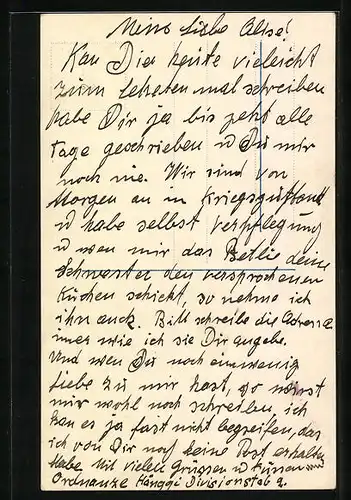 Meine Liebe Alise!
Kan Dier heute vieleicht
zum letzten mal schreiben
habe Dir ja bis jetzt alle
tage geschrieben u Du mir
noch nie. Wir sind von
Morgen an in Kriegszustand
u habe selbst verpflegung
u wen mir das Betli deine
Schwaster den versprochenen
Kuchen schickt, so nehme ich
ihn auch. Bitt schreibe die Adresse
imer wie ich sie Dir angebe.
Und wen Du noch ein wenig
Liebe zu mir hast, so wirst
mir wohl noch schreiben, ich
kan es ja fast nicht begreifen, das
ich von Dir noch keine Post erhalten
Habe. Mit vielen Grüssen u Küssen
Ordnanze Hänggi Divisionstab 2.